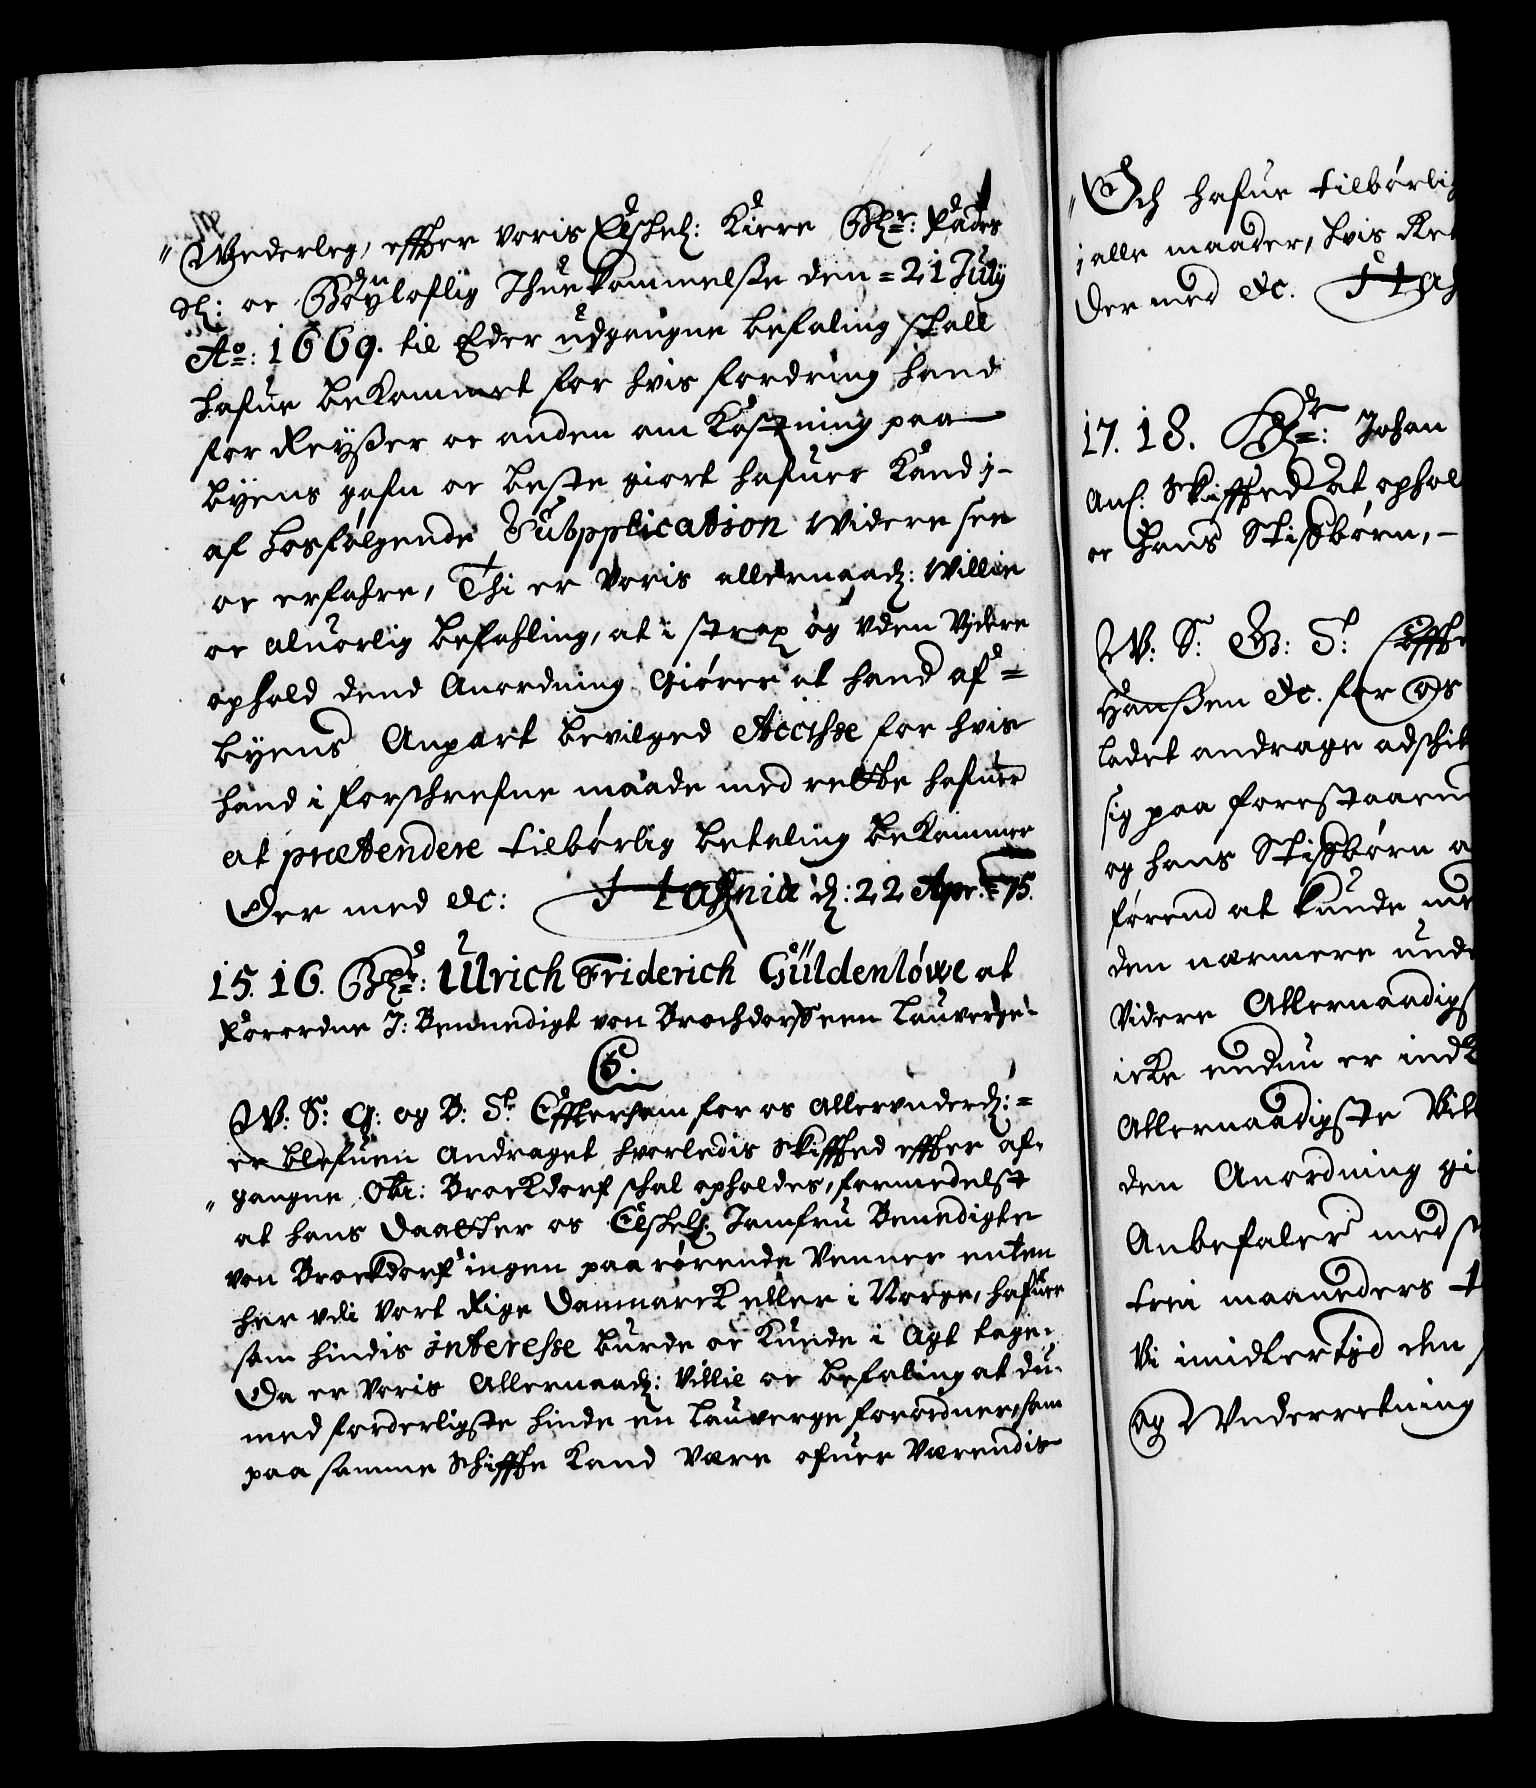 " Wederleg, effter voris Elskel: Kiere Hr: Faders
S: oc Høyloflig Ihuekommelse den = 21 July
Ao: 1669. til Eder udgangne befaling skall
hafue bekommet for hvis fordring hand
for Reyßer oc anden om Kostning paa
byens gafn oc beste giort hafuer Kand j-
af hosfølgende Supplication Widere see
oc erfahre, Thi er Voris allernaad: Willie
oc aluorlig befahling, at i strax og Vden Vidre
ophold dend Anordning Giørrer at hand af =
byens Anpart bevilged Accisse for hvis
hand i forschrefne maade med rette hafuer
at prætendere tilbørlig betaling bekommer
Der med &c: Hafnia d: 22 Apr: = 75.
15. 16. Hr: Ulrich Friderich Güldenløwe at
Forordne J: Bennedigt von Brochdorff een Lauverge-
C5.
W: S: G: og B: St. Eftersom for os Allervnderd: =
er blefuen Andraget, hvorledis Skifftet effter af-
" gangne Obr: Brockdorf schal opholdes, formedelst
at hans Daatter os Elskel: Jomfru Benedigte
von Brockdorf ingen paarørende Venner enten
her vdi Vort Rige Danmarck eller i Norge, hafuer
som hindis interesse burde oc Kunde i Agt tage.
Da er Voris Allernaad: Villie oc befaling at du
med forderligste hinde en Lauverge forordner, som
paa samme Schiffte Kand være ofuer Værendis
" Och hafue tilbørlig
j alle maader, hvis Re
Der med &c. Haf
17. 18. Hr: Johan
Anl. Skifftet at ophol
oc hans Stifbørn, -
W: S: G: T: Effte
Hanßen &c. for Os
ladet andrage adschil
sig paa forestaaen
og hans Stifbørn a
førend at kunde
den nærmere unde
Videre Allernaadigs
icke endnu er ind
Allernaadigste Vil
den Anordning gi
Anbefaler med
trei maaneders t
Vi imidlertid den
og Vnderretning